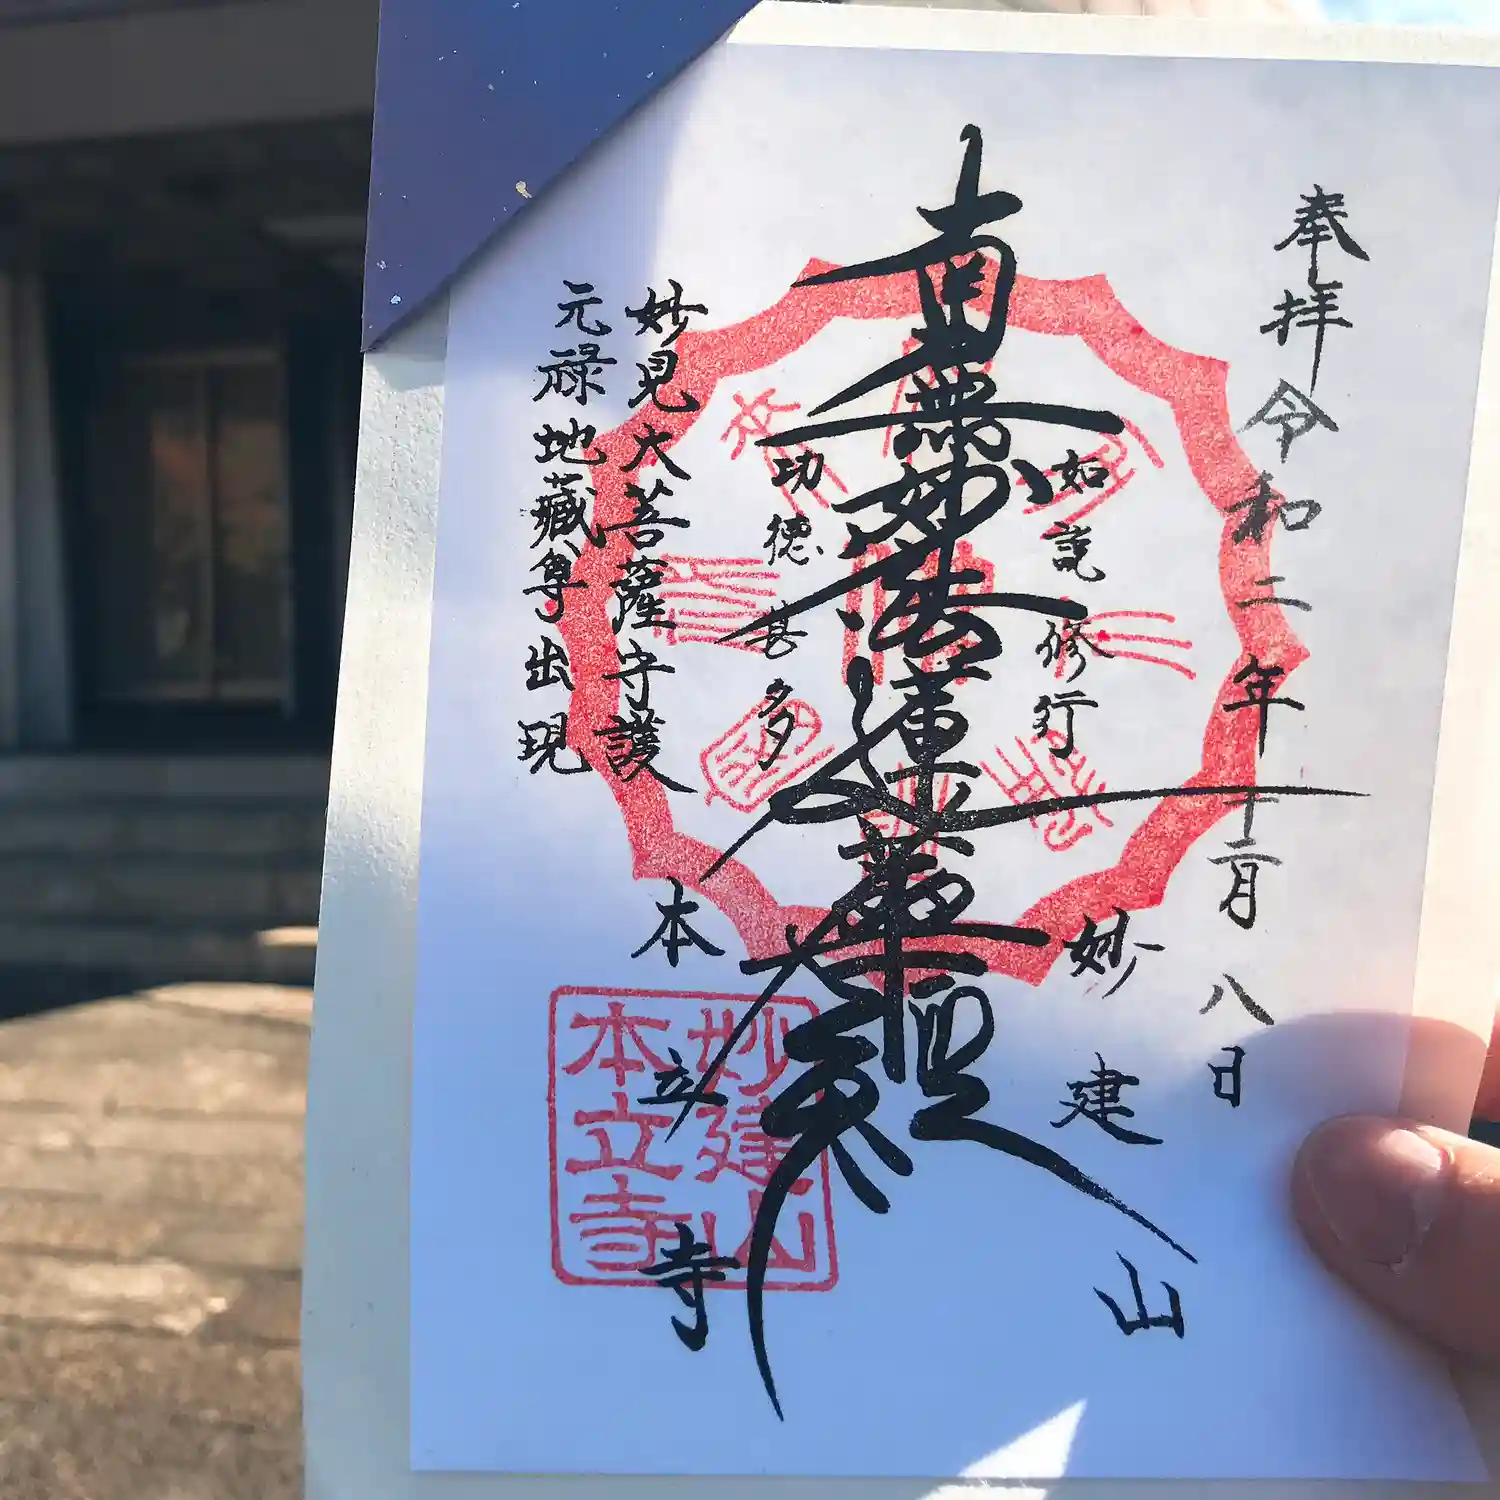 奉拝 令和二年十二月八日
如説修行
南無妙法蓮華経
功徳甚多
妙見大菩薩守護
元禄地蔵尊出現
妙建山
本立寺
妙建山
本立寺